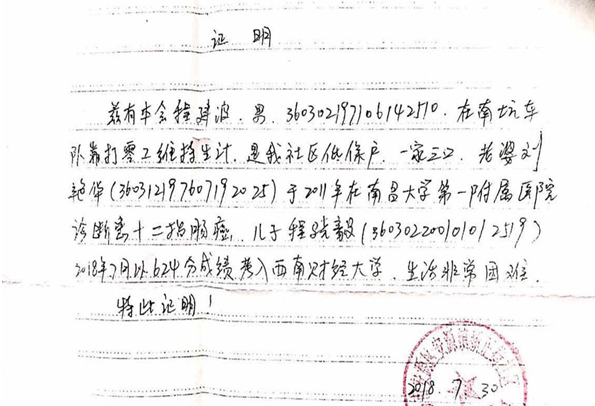 证 明
兹有本会程建波,男,360302197106142510,在南坑车
队靠打零工维持生计,是我社区低保户,一家三口,老婆刘
艳华(360312197607192025)于2011年在南昌大学第一附属医院
诊断患十二指肠癌,儿子程毅(360302200101012519)
2018年7月以624分成绩考入西南财经大学,生活非常困难.
特此证明!
2018.7.30